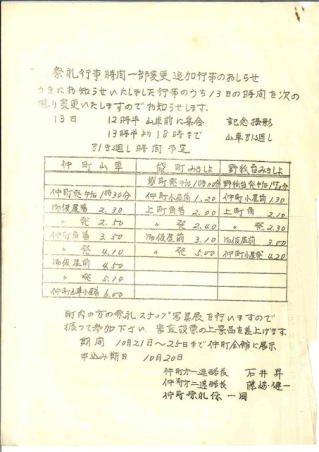 祭礼行事時間一部変更追加行事のおしらせ
さきにお知らせいたしました行事のうち13日の時間を次の
通り変更いたしますのでお知らせします。
13日 12時半 山車前に集合 記念撮影
13時半より18時まで 山車引き廻し
引き廻し時間予定
仲町山車 袋町みこし 野秋台みこし
仲町発 午后1時30分 袋町発 午后1時00分
2.30 仲町小屋前 1.20 仲町小屋前 1.30
〃 発 2.50 上町角着 2.00 上町角 2.10
仲町角着 3.50 〃 発 2.40 〃 発 2.30
〃 発 4.10 3.10 3.00
4.50 〃 発 5.00 仲町小屋発 4.20
〃 発 5.10
6.00
町内の方の祭礼スナップ写真展を行いますので
振って参加下さい 審査投票の上景品を差上げます。
期間 10月21日~25日まで仲町会館に展示
申込み期日 10月20日
石井昇
健一
仲町祭礼係一同